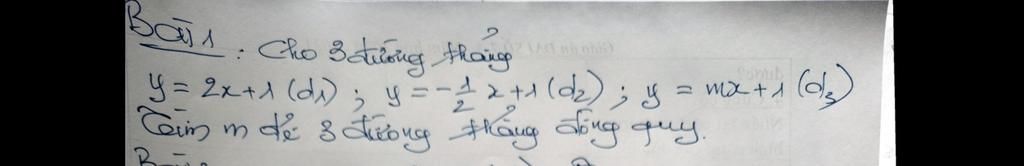 Bài 1: Cho 3 đường thẳng
y = 2x+1 (d1); y = -1/2 x+1 (d2); y = mx+1 (d3)
Tìm m để 3 đường thẳng đồng quy.